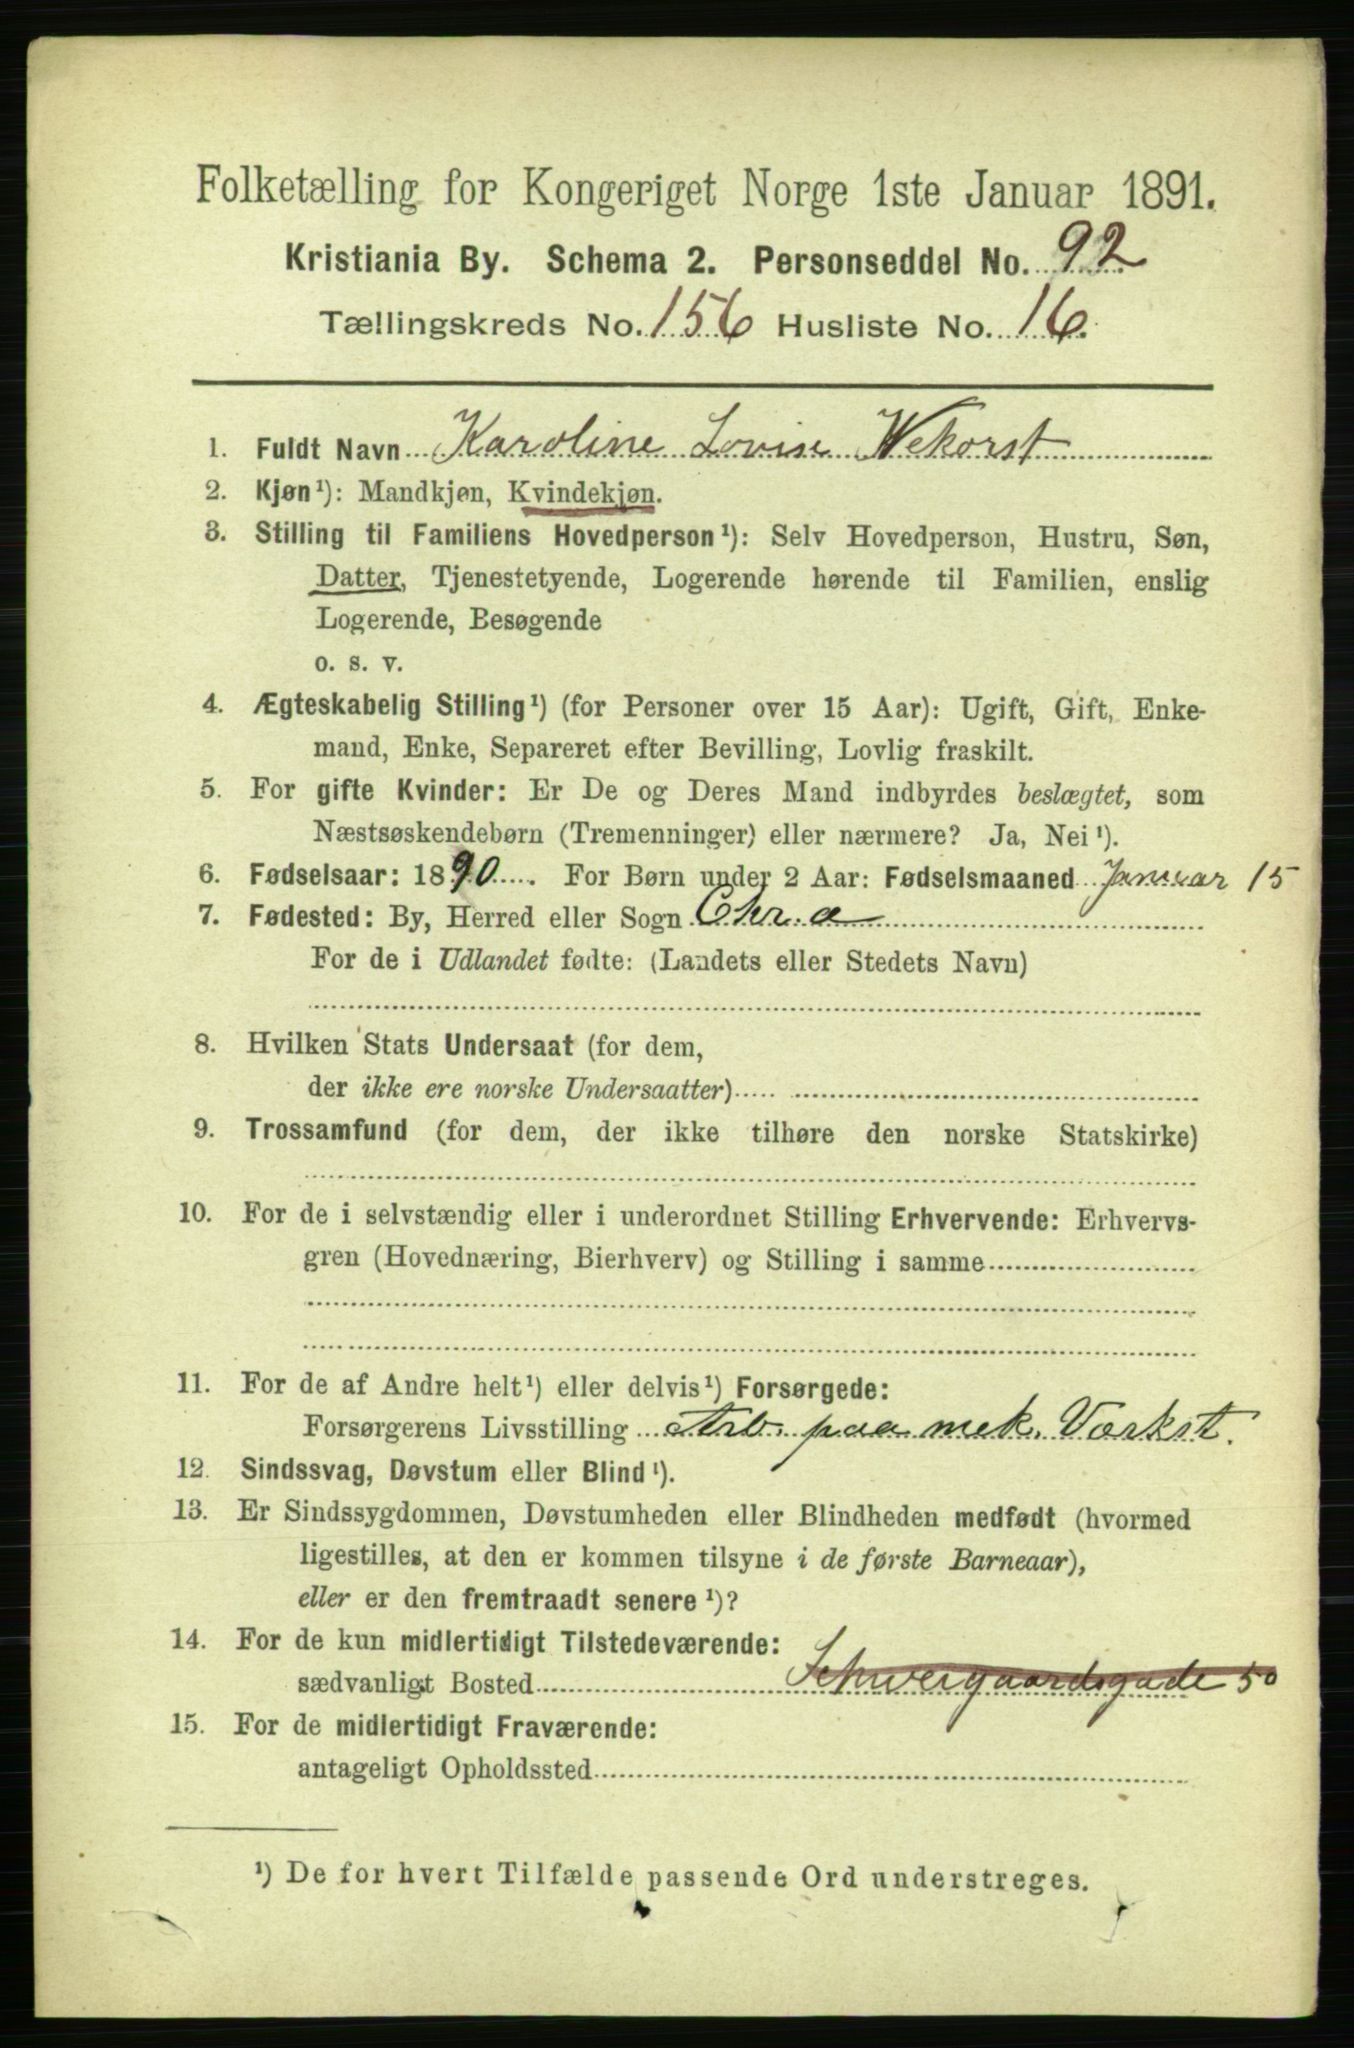 Folketælling for Kongeriget Norge 1ste Januar 1891.
Kristiania By. Schema 2. Personseddel No. 92
Tællingskreds No. 156 Husliste No. 16.
1. Fuldt Navn Karoline Lovise Wekorst
2. Kjøn¹): Mandkjøn, Kvindekjøn.
3. Stilling til Familiens Hovedperson¹): Selv Hovedperson, Hustru, Søn,
Datter, Tjenestetyende, Logerende hørende til Familien, enslig
Logerende, Besøgende
o. s. v.
4. Ægteskabelig Stilling¹) (for Personer over 15 Aar): Ugift, Gift, Enke-
mand, Enke, Separeret efter Bevilling, Lovlig fraskilt.
5. For gifte Kvinder: Er De og Deres Mand indbyrdes beslægtet, som
Næstsøskendebørn (Tremenninger) eller nærmere? Ja, Nei¹).
6. Fødselsaar: 1890. For Børn under 2 Aar: Fødselsmaaned Januar 15
7. Fødested: By, Herred eller Sogn Chr.a
For de i Udlandet fødte: (Landets eller Stedets Navn)
8. Hvilken Stats Undersaat (for dem,
der ikke ere norske Undersaatter)
9. Trossamfund (for dem, der ikke tilhøre den norske Statskirke)
10. For de i selvstændig eller i underordnet Stilling Erhvervende: Erhvervs-
gren (Hovednæring, Bierhverv) og Stilling i samme
11. For de af Andre helt¹) eller delvis¹) Forsørgede:
Forsørgerens Livsstilling Arb. paa mek. Værkst.
12. Sindssvag, Døvstum eller Blind¹).
13. Er Sindssygdommen, Døvstumheden eller Blindheden medfødt (hvormed
ligestilles, at den er kommen tilsyne i de første Barneaar),
eller er den fremtraadt senere¹)?
14. For de kun midlertidigt Tilstedeværende:
sædvanligt Bosted Schweigaardsgade 50
15. For de midlertidigt Fraværende:
antageligt Opholdssted
¹) De for hvert Tilfælde passende Ord understreges.